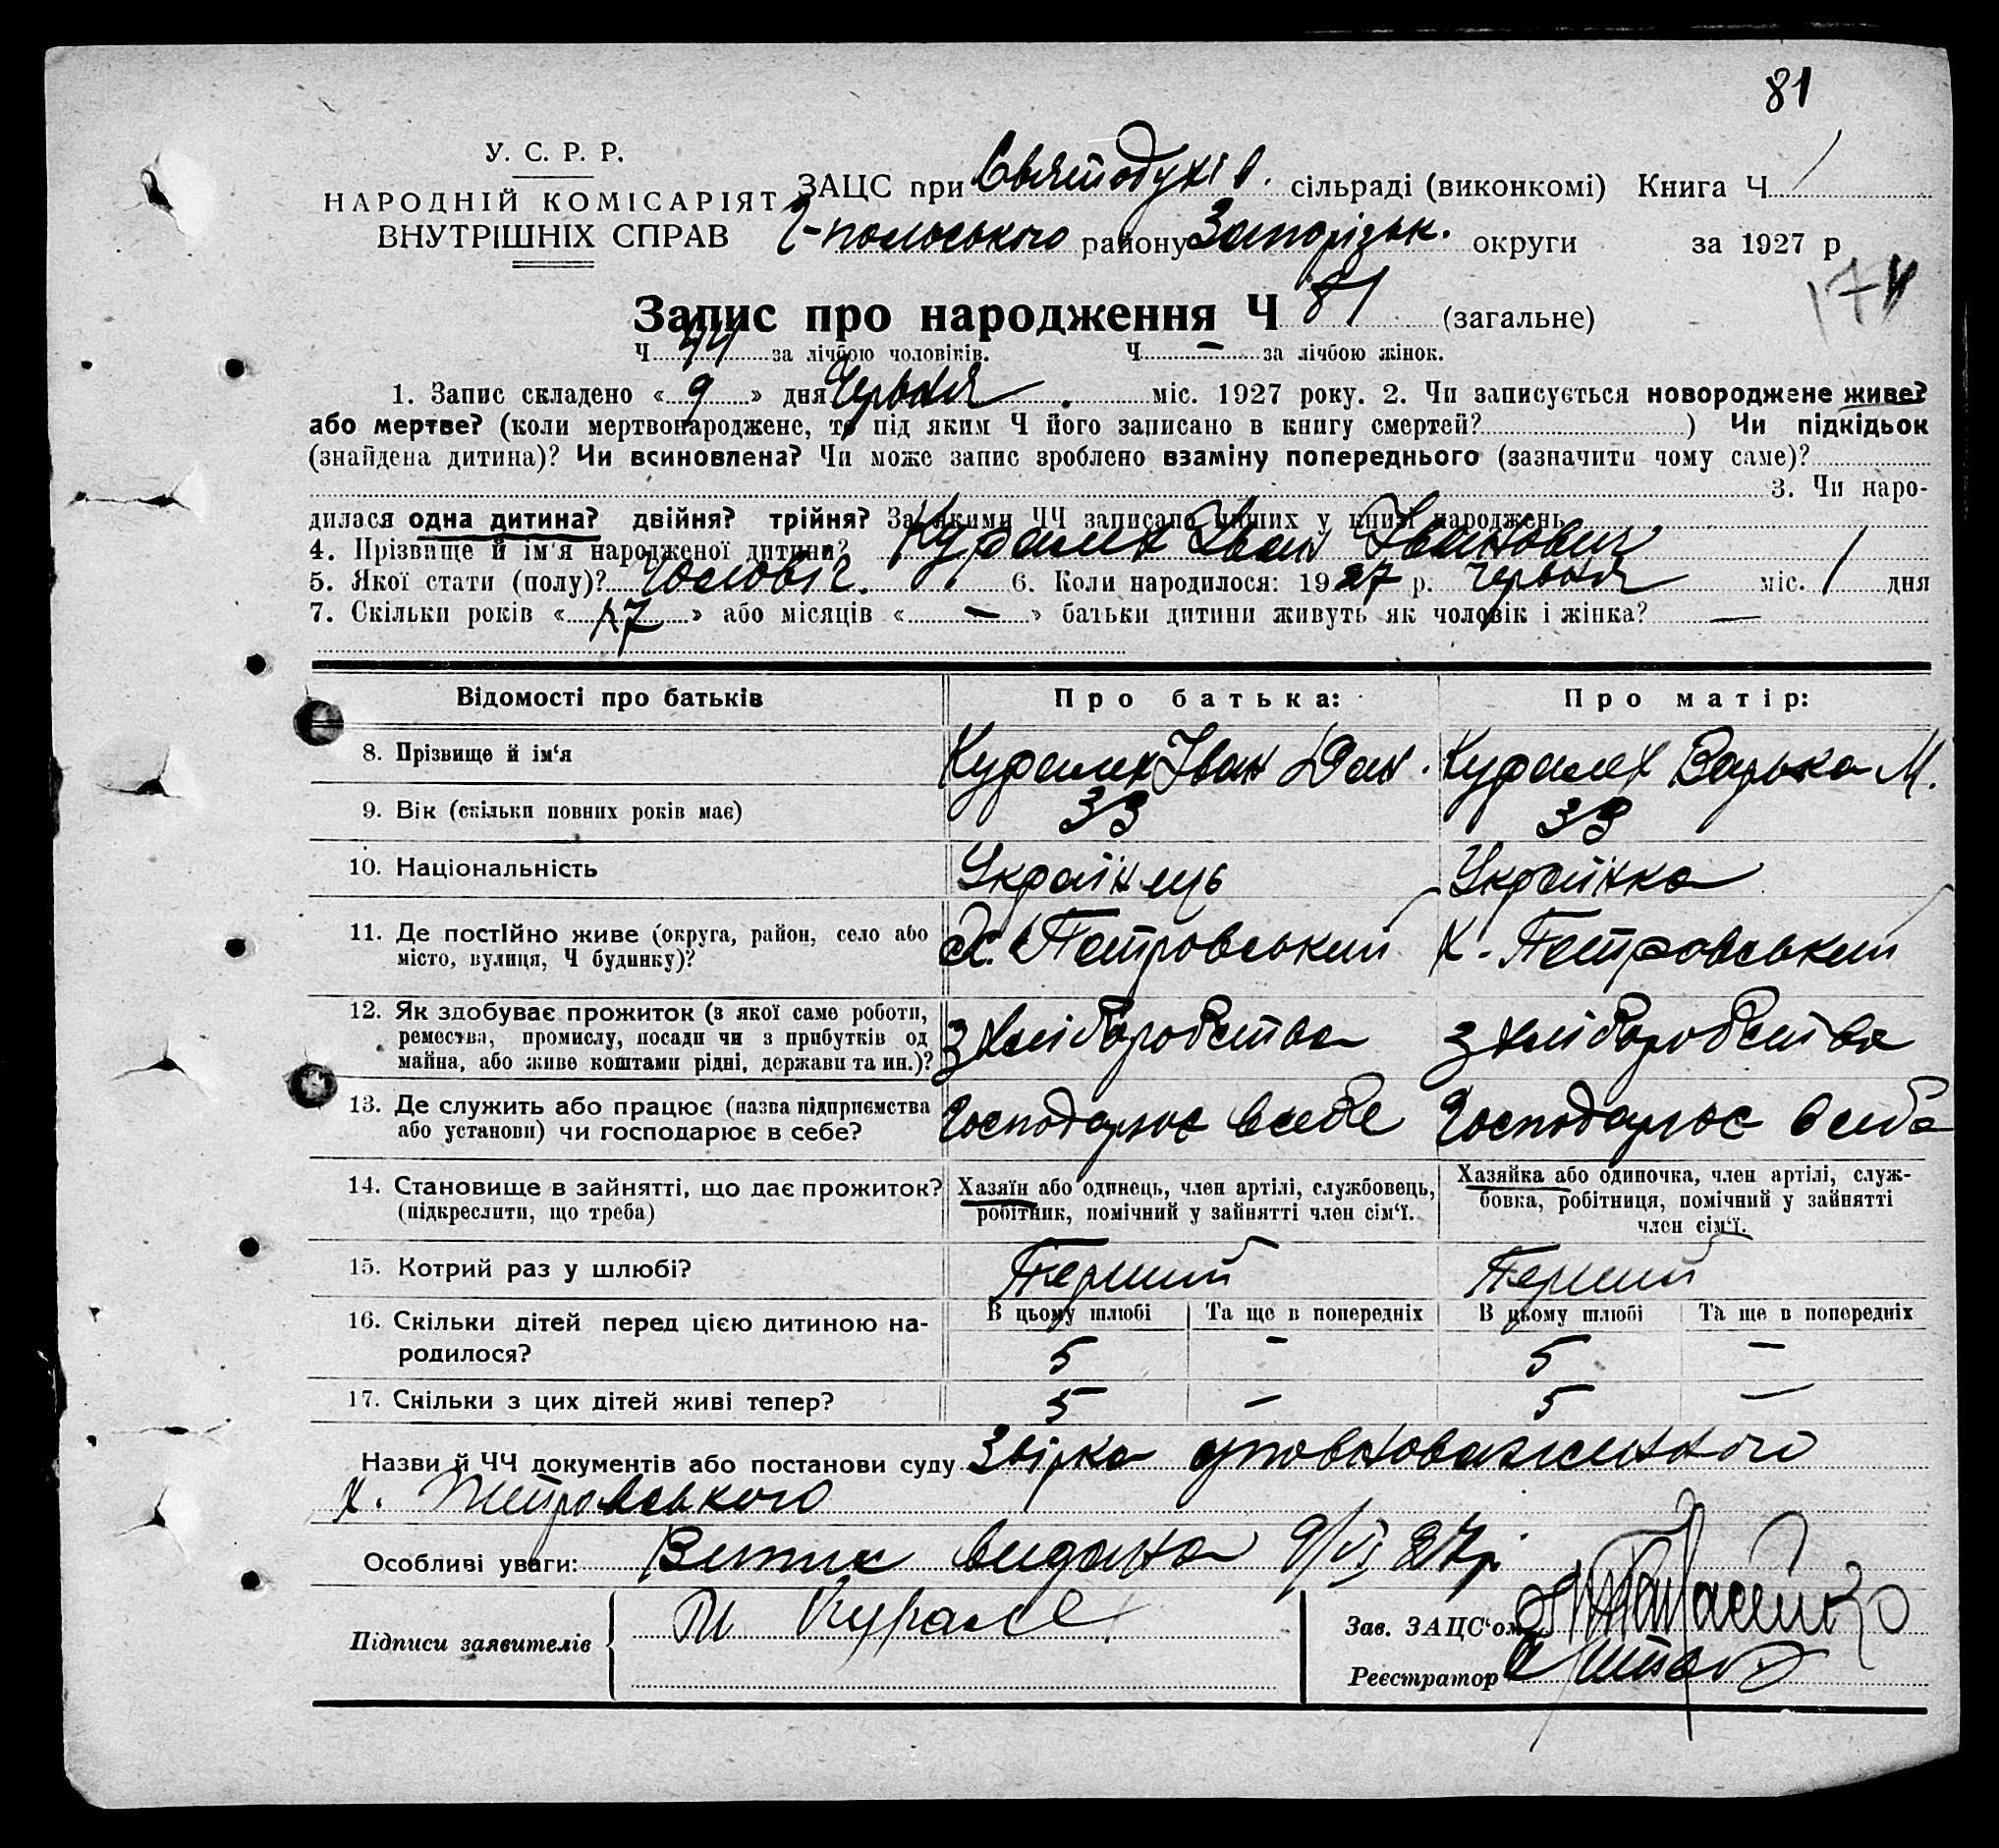 81
У. С. Р. Р.
НАРОДНІЙ КОМІСАРІЯТ
ВНУТРІШНІХ СПРАВ
ЗАЦС при Святодухів. сільраді (виконкомі) Книга Ч 1
Г-польського району Запорізьк. округи за 1927 р
174
Запис про народження Ч 81 (загальне)
Ч 44 за лічбою чоловіків. Ч — за лічбою жінок.
1. Запис складено « 9 » дня Червня міс. 1927 року. 2. Чи записується новороджене живе?
або мертве? (коли мертвонароджене, то під яким Ч його записано в книгу смертей? ) Чи підкідьок
(знайдена дитина)? Чи всиновлена? Чи може запис зроблено взаміну попереднього (зазначити чому саме)?
3. Чи наро-
дилася одна дитина? двійня? трійня? За якими ЧЧ записано інших у книзі народжень
4. Прізвище й ім'я народженої дитини? Куралех Іван Іванович
5. Якої стати (полу)? Чоловіч. 6. Коли народилося: 1927 р. червня міс. 1 дня
7. Скільки років « 17 » або місяців « — » батьки дитини живуть як чоловік і жінка? —
Відомості про батьків Про батька: Про матір:
8. Прізвище й ім'я Куралех Іван Дан. Куралех Варька М.
9. Вік (скільки повних років має) 39 39
10. Національність Українець Українка
11. Де постІйно живе (округа, район, село або
місто, вулиця, Ч будинку)? х. Петровський х. Петровський
12. Як здобуває прожиток (з якої саме роботи,
ремества, промислу, посади чи з прибутків од
майна, або живе коштами рідні, держави та ин.)? З хліборобства З хліборобства
13. Де служить або працює (назва підприємства
або установи) чи господарює в себе? Господарює в себе Господарює в себе
14. Становище в зайнятті, що дає прожиток?
(підкреслити, що треба)
Хазяїн або одинець, член артілі, службовець,
робітник, помічний у зайнятті член сім'ї.
Хазяйка або одиночка, член артілі, служ-
бовка, робітниця, помічний у зайнятті
член сім'ї.
15. Котрий раз у шлюбі? Перший Перший
В цьому шлюбі Та ще в попередніх В цьому шлюбі Та ще в попередніх
16. Скільки дітей перед цією дитиною на-
родилося? 5 — 5 —
17. Скільки з цих дітей живі тепер? 5 — 5 —
Назви й ЧЧ документів або постанови суду Звірка уповноваженного
х. Петровського
Особливі уваги: Випис видана 9/VI 27р.
Підписи заявителів
Зав. ЗАЦС'ом
Реєстратор